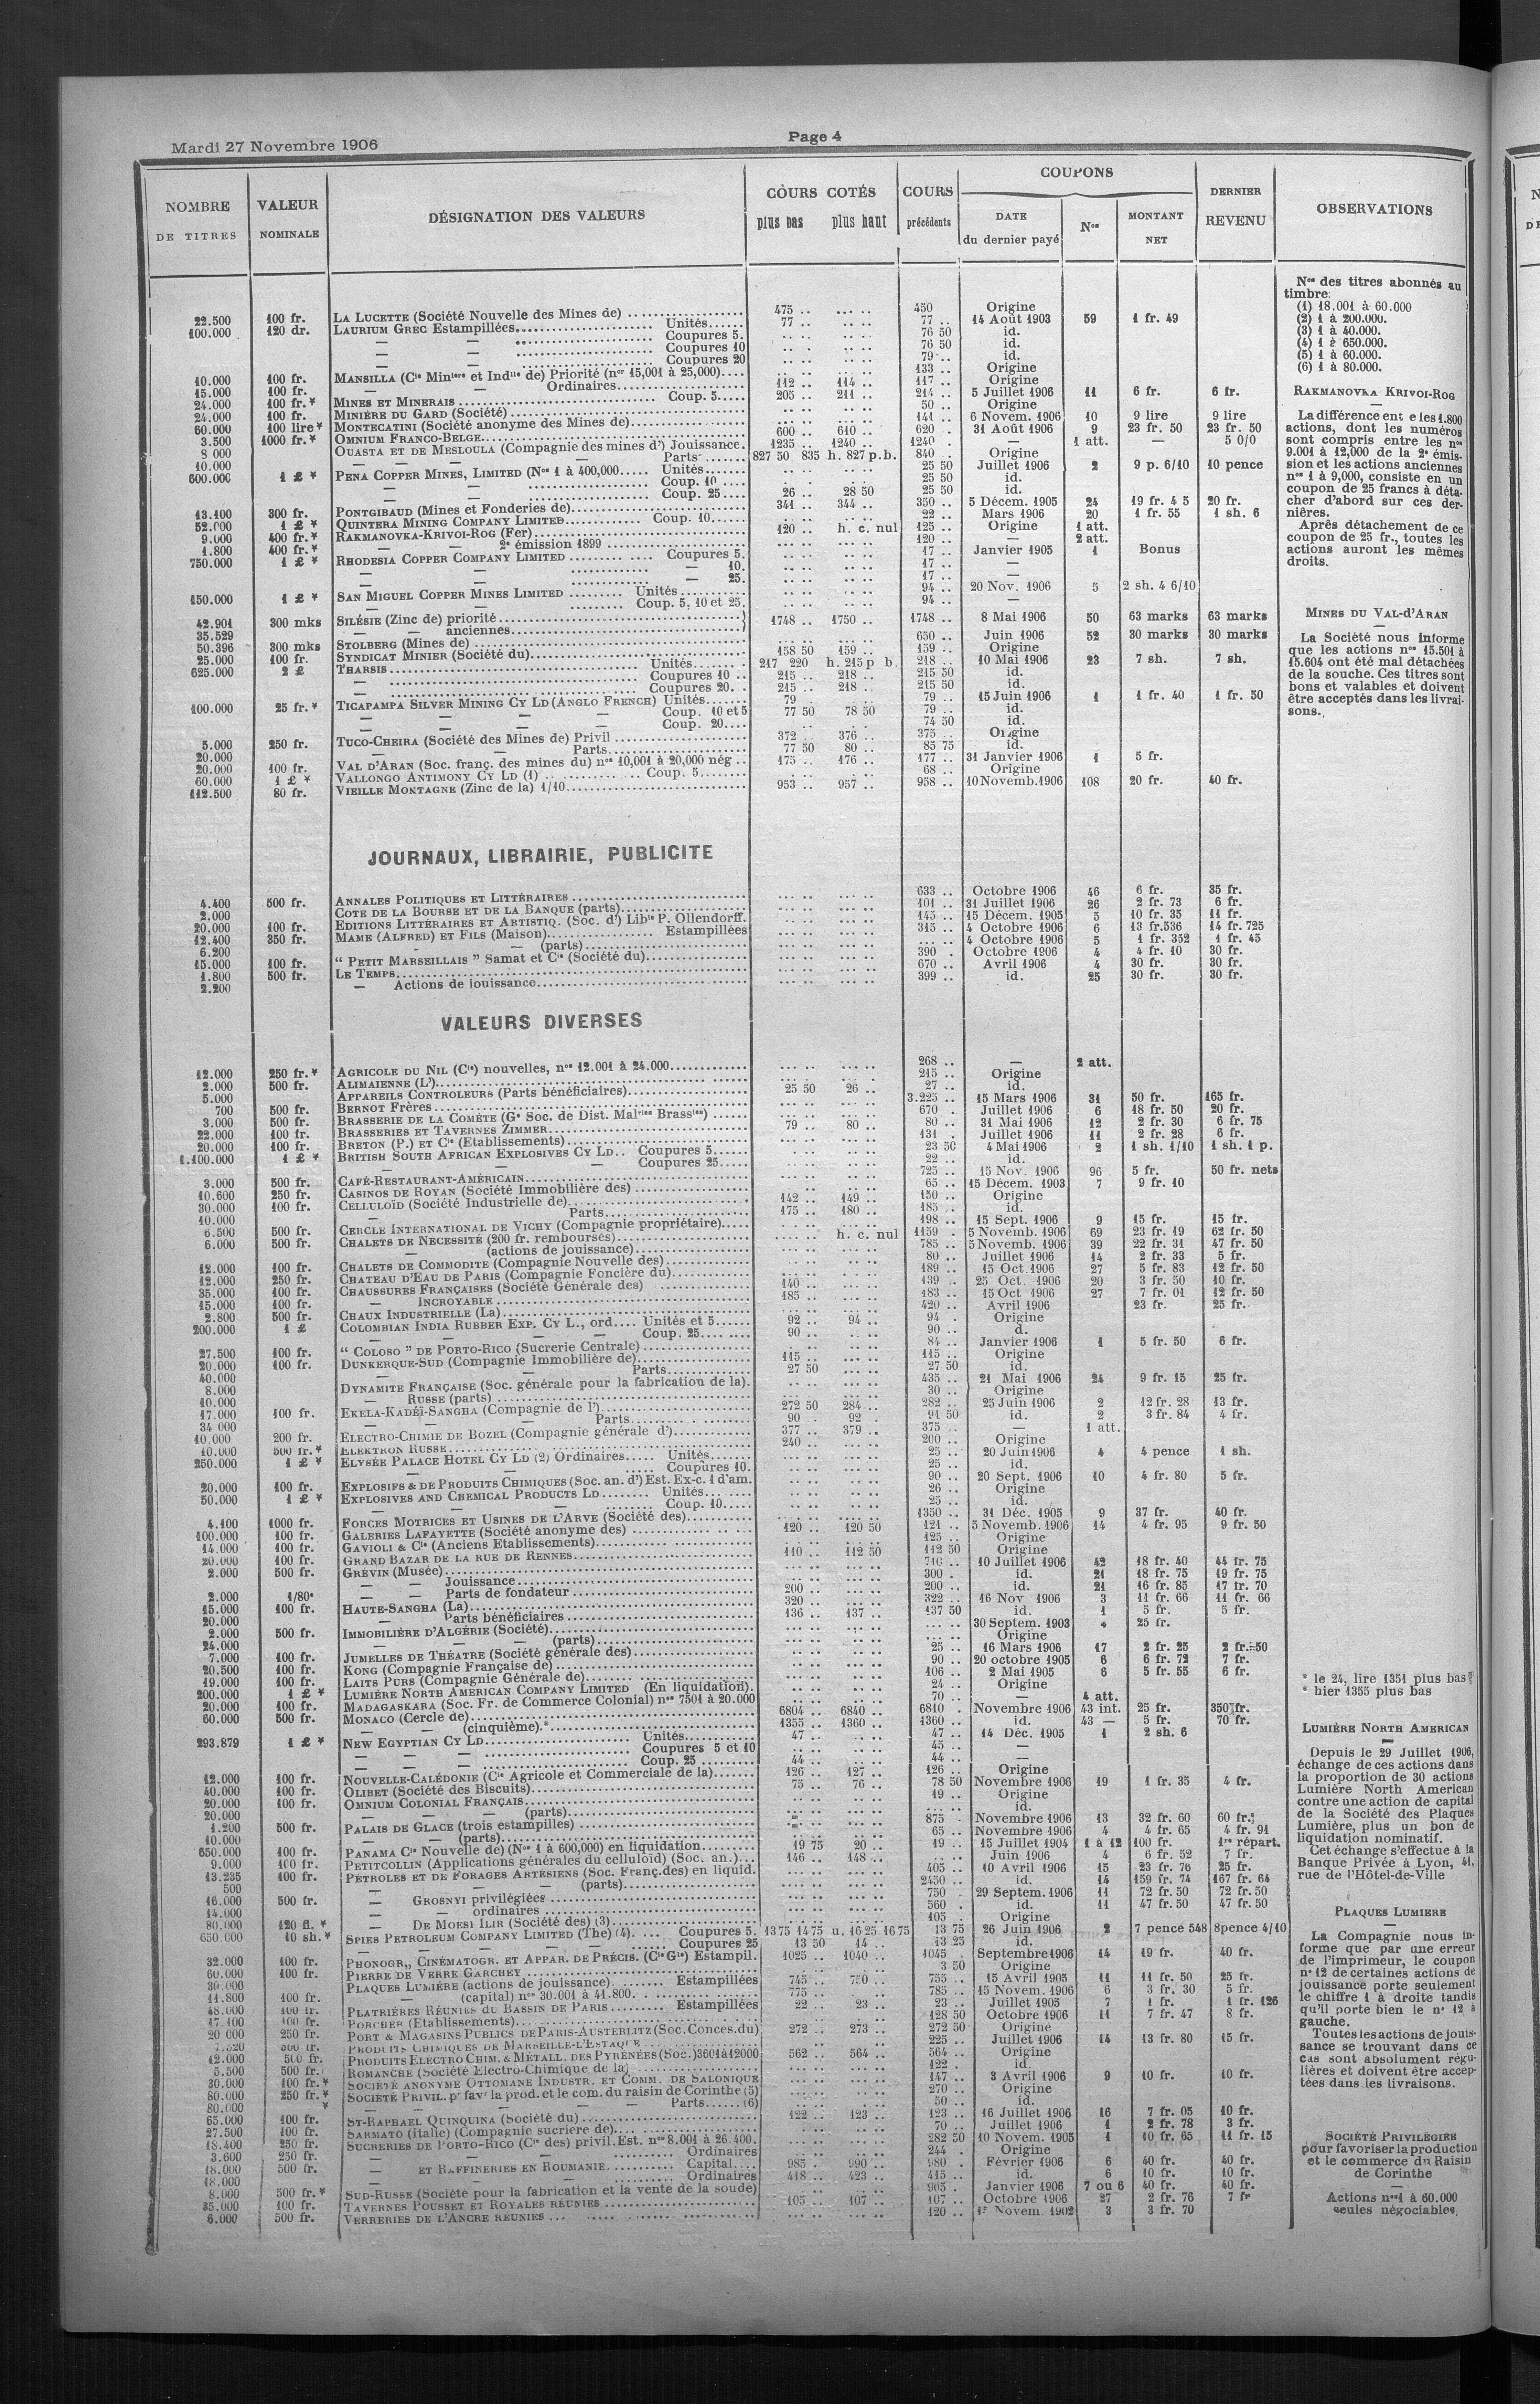 Mardi 27 Novembre 1906
Page 4
NOMBRE DE TITRES
VALEUR NOMINALE
DÉSIGNATION DES VALEURS
COURS COTÉS
plus bas plus haut
COURS précédents
COUPONS
DATE du dernier payé
Nos
MONTANT NET
DERNIER REVENU
OBSERVATIONS
22.500 100 fr. LA LUCETTE (Société Nouvelle des Mines de) 475 .. ... .. 450 Origine
100.000 120 dr. LAURIUM GREC Estampillées Unités 77 .. .. .. 77 .. 14 Août 1903 59 1 fr. 49
— — Coupures 5. .. .. .. .. 76 50 id.
— — Coupures 10 .. .. .. .. 76 50 id.
— — Coupures 20 .. .. .. .. 79 .. id.
10.000 100 fr. MANSILLA (Cie Minière et Indlle de) Priorité (nos 15,001 à 25,000) 133 .. Origine
15.000 100 fr. — — Ordinaires 112 .. 114 .. 117 .. Origine
24.000 100 fr.* MINES ET MINERAIS Coup. 5 205 .. 211 .. 214 .. 5 Juillet 1906 11 6 fr. 6 fr.
24.000 100 fr. MINIÈRE DU GARD (Société) 50 .. Origine
60.000 100 lire* MONTECATINI (Société anonyme des Mines de) 141 .. 6 Novem. 1906 10 9 lire 9 lire
3.500 1000 fr.* OMNIUM FRANCO-BELGE 600 .. 610 .. 620 . 31 Août 1906 9 23 fr. 50 23 fr. 50
8 000 OUASTA ET DE MESLOULA (Compagnie des mines d') Jouissance. 1235 .. 1240 .. 1240 . — 1 att. — 5 0/0
10.000 — — — Parts 827 50 835 h. 827 p.b. 840 . Origine
600.000 1 £ * PENA COPPER MINES, LIMITED (Nos 1 à 400,000 Unités 25 50 Juillet 1906 2 9 p. 6/10 10 pence
— — Coup. 10 25 50 id.
— — Coup. 25 26 .. 28 50 25 50 id.
13.100 300 fr. PONTGIBAUD (Mines et Fonderies de) 341 .. 344 .. 350 .. 5 Décem. 1905 24 19 fr. 4 5 20 fr.
52.000 1 £ * QUINTERA MINING COMPANY LIMITED Coup. 10 22 .. Mars 1906 20 1 fr. 55 1 sh. 6
9.000 400 fr.* RAKMANOVKA-KRIVOI-ROG (Fer) 120 .. h. c. nul 125 .. Origine 1 att.
1.800 400 fr.* — — 2e émission 1899 120 .. — 2 att.
750.000 1 £ * RHODESIA COPPER COMPANY LIMITED Coupures 5. 17 .. Janvier 1905 1 Bonus
— — — 10. 17 .. —
— — — 25. 17 .. —
150.000 1 £ * SAN MIGUEL COPPER MINES LIMITED Unités 94 .. 20 Nov. 1906 5 2 sh. 4 6/10
— — Coup. 5, 10 et 25. 94 .. —
42.901 300 mks SILÉSIE (Zinc de) priorité 1748 .. 1750 .. 1748 .. 8 Mai 1906 50 63 marks 63 marks
35.529 — — anciennes
50.396 300 mks STOLBERG (Mines de) 650 .. Juin 1906 52 30 marks 30 marks
25.000 100 fr. SYNDICAT MINIER (Société du) 158 50 159 .. 159 .. Origine
625.000 2 £ THARSIS Unités 217 220 h. 215 p b. 218 .. 10 Mai 1906 23 7 sh. 7 sh.
— Coupures 10 215 .. 218 .. 215 50 id.
— Coupures 20 215 .. 218 .. 215 50 id.
100.000 25 fr.* TICAPAMPA SILVER MINING CY LD (ANGLO FRENCH) Unités 79 .. 79 .. 15 Juin 1906 1 1 fr. 40 1 fr. 50
— — — — Coup. 10 et 5 77 50 78 50 79 .. id.
— — — — Coup. 20 74 50 id.
5.000 250 fr. TUCO-CHEIRA (Société des Mines de) Privil 372 .. 376 .. 375 .. Origine
20.000 — — Parts 77 50 80 .. 85 75 id.
20.000 100 fr. VAL D'ARAN (Soc. franç. des mines du) nos 10,001 à 20,000 nég .. 175 .. 176 .. 177 .. 31 Janvier 1906 1 5 fr.
60.000 1 £ * VALLONGO ANTIMONY CY LD (1) Coup. 5 68 .. Origine
112.500 80 fr. VIEILLE MONTAGNE (Zinc de la) 1/10 953 .. 957 .. 958 .. 10 Novemb. 1906 108 20 fr. 40 fr.
JOURNAUX, LIBRAIRIE, PUBLICITE
4.400 500 fr. ANNALES POLITIQUES ET LITTÉRAIRES 633 .. Octobre 1906 46 6 fr. 35 fr.
2.000 COTE DE LA BOURSE ET DE LA BANQUE (parts) 101 .. 31 Juillet 1906 26 2 fr. 73 6 fr.
20.000 100 fr. EDITIONS LITTÉRAIRES ET ARTISTIQ. (Soc. d') Libie P. Ollendorff. 145 .. 15 Décem. 1905 5 10 fr. 35 11 fr.
12.400 350 fr. MAME (ALFRED) ET FILS (Maison) Estampillées 315 .. 4 Octobre 1906 6 13 fr.536 14 fr. 725
6.200 — (parts) ... .. 4 Octobre 1906 5 1 fr. 352 1 fr. 45
15.000 100 fr. “ PETIT MARSEILLAIS ” Samat et Cie (Société du) 390 . Octobre 1906 4 4 fr. 10 30 fr.
1.800 500 fr. LE TEMPS 670 .. Avril 1906 4 30 fr. 30 fr.
2.200 — Actions de jouissance 399 .. id. 25 30 fr. 30 fr.
VALEURS DIVERSES
12.000 250 fr.* AGRICOLE DU NIL (Cie) nouvelles, nos 12.001 à 24.000 268 .. — 2 att.
2.000 500 fr. ALIMAIENNE (L') 215 .. Origine
5.000 APPAREILS CONTROLEURS (Parts bénéficiaires) 25 50 26 .. 27 .. id.
700 500 fr. BERNOT FRÈRES 3.225 .. 15 Mars 1906 31 50 fr. 165 fr.
3.000 500 fr. BRASSERIE DE LA COMÈTE (Ge Soc. de Dist. Malries Brassies) 670 . Juillet 1906 6 18 fr. 50 20 fr.
22.000 100 fr. BRASSERIES ET TAVERNES ZIMMER 79 .. 80 .. 80 .. 31 Mai 1906 12 2 fr. 30 6 fr. 75
20.000 100 fr. BRETON (P.) ET Cie (Etablissements) 131 . Juillet 1906 11 2 fr. 28 6 fr.
1.100.000 1 £ * BRITISH SOUTH AFRICAN EXPLOSIVES CY LD.. Coupures 5 23 50 4 Mai 1906 2 1 sh. 1/10 1 sh. 1 p.
— — — Coupures 25 22 .. id.
3.000 500 fr. CAFÉ-RESTAURANT-AMÉRICAIN 725 .. 15 Nov. 1906 96 5 fr. 50 fr. nets
10.600 250 fr. CASINOS DE ROYAN (Société Immobilière des) 65 .. 15 Décem. 1903 7 9 fr. 10
30.000 100 fr. CELLULOÏD (Société Industrielle de) 142 .. 149 .. 150 .. Origine
10.000 — Parts 175 .. 180 .. 185 .. id.
6.500 500 fr. CERCLE INTERNATIONAL DE VICHY (Compagnie propriétaire) 198 .. 15 Sept. 1906 9 15 fr. 15 fr.
6.000 500 fr. CHALETS DE NECESSITÉ (200 fr. remboursés) h. c. nul 1159 . 5 Novemb. 1906 69 23 fr. 19 62 fr. 50
— (actions de jouissance) 785 .. 5 Novemb. 1906 39 22 fr. 31 47 fr. 50
12.000 100 fr. CHALETS DE COMMODITE (Compagnie Nouvelle des) 80 .. Juillet 1906 14 2 fr. 33 5 fr.
12.000 250 fr. CHATEAU D'EAU DE PARIS (Compagnie Foncière du) 189 .. 15 Oct. 1906 27 5 fr. 83 12 fr. 50
35.000 100 fr. CHAUSSURES FRANÇAISES (Société Générale des) 140 .. 139 .. 25 Oct. 1906 20 3 fr. 50 10 fr.
15.000 100 fr. — INCROYABLE 185 .. 183 .. 15 Oct 1906 27 7 fr. 01 12 fr. 50
2.800 500 fr. CHAUX INDUSTRIELLE (La) 420 .. Avril 1906 23 fr. 25 fr.
200.000 1 £ COLOMBIAN INDIA RUBBER EXP. CY L., ord.... Unités et 5 92 .. 94 .. 94 . Origine
— — — — Coup. 25 90 .. 90 .. d.
27.500 100 fr. “ COLOSO ” DE PORTO-RICO (Sucrerie Centrale) 84 .. Janvier 1906 1 5 fr. 50 6 fr.
20.000 100 fr. DUNKERQUE-SUD (Compagnie Immobilière de) 115 .. 115 .. Origine
40.000 — — Parts 27 50 27 50 id.
8.000 DYNAMITE FRANÇAISE (Soc. générale pour la fabrication de la). 435 .. 21 Mai 1906 24 9 fr. 15 25 fr.
10.000 — RUSSE (parts) 30 .. Origine
17.000 100 fr. EKELA-KADÉÏ-SANGHA (Compagnie de l') 272 50 284 .. 282 .. 25 Juin 1906 2 12 fr. 28 13 fr.
34 000 — — — Parts 90 . 92 . 91 50 id. 2 3 fr. 84 4 fr.
10.000 200 fr. ELECTRO-CHIMIE DE BOZEL (Compagnie générale d') 377 .. 379 .. 375 .. — 1 att.
10.000 500 fr.* ELEKTRON RUSSE 240 .. 200 .. Origine
250.000 1 £ * ELYSÉE PALACE HOTEL CY LD (2) Ordinaires Unités 25 .. 20 Juin 1906 4 4 pence 1 sh.
— — Coupures 10. 25 .. id.
20.000 100 fr. EXPLOSIFS & DE PRODUITS CHIMIQUES (Soc. an. d') Est. Ex-c. 1 d'am. 90 .. 20 Sept. 1906 10 4 fr. 80 5 fr.
50.000 1 £ * EXPLOSIVES AND CHEMICAL PRODUCTS LD Unités 26 .. Origine
— — Coup. 10 25 .. id.
4.100 1000 fr. FORCES MOTRICES ET USINES DE L'ARVE (Société des) 1350 .. 31 Déc. 1905 9 37 fr. 40 fr.
100.000 100 fr. GALERIES LAFAYETTE (Société anonyme des) 120 .. 120 50 121 .. 5 Novemb. 1906 14 4 fr. 95 9 fr. 50
14.000 100 fr. GAVIOLI & Cie (Anciens Etablissements) 125 .. Origine
20.000 100 fr. GRAND BAZAR DE LA RUE DE RENNES 110 .. 112 50 112 50 Origine
2.000 500 fr. GRÉVIN (Musée) 10 Juillet 1906 42 18 fr. 40 44 fr. 75
— — Jouissance 300 . id. 21 18 fr. 75 19 fr. 75
2.000 1/80e — — Parts de fondateur 200 .. 200 .. id. 21 16 fr. 85 17 fr. 70
15.000 100 fr. HAUTE-SANGHA (La) 320 .. 322 .. 16 Nov 1906 3 11 fr. 66 11 fr. 66
20.000 — Parts bénéficiaires 136 .. 137 .. 137 50 id. 1 5 fr. 5 fr.
2.000 500 fr. IMMOBILIÈRE D'ALGÉRIE (Société) ... .. 30 Septem. 1903 4 25 fr.
24.000 — — (parts) ... .. Origine
7.000 100 fr. JUMELLES DE THÉATRE (Société générale des) 25 .. 16 Mars 1906 17 2 fr. 25 2 fr. 50
20.500 100 fr. KONG (Compagnie Française de) 90 .. 20 octobre 1905 6 6 fr. 72 7 fr.
19.000 100 fr. LAITS PURS (Compagnie Générale de) 106 .. 2 Mai 1905 6 5 fr. 55 6 fr.
200.000 1 £ * LUMIÈRE NORTH AMERICAN COMPANY LIMITED (En liquidation). 24 .. Origine
20.000 100 fr. MADAGASKARA (Soc. Fr. de Commerce Colonial) nos 7501 à 20.000 70 .. — 4 att.
60.000 500 fr. MONACO (Cercle de) 6804 .. 6840 .. 6810 . Novembre 1906 43 int. 25 fr. 350 fr.
— — (cinquième).* 1355 .. 1360 .. 1360 .. id. 43 — 5 fr. 70 fr.
293.879 1 £ * NEW EGYPTIAN CY LD Unités 47 .. 47 .. 14 Déc. 1905 1 2 sh. 6
— — — Coupures 5 et 10 45 .. —
— — — Coup. 25 44 .. 44 .. —
12.000 100 fr. NOUVELLE-CALÉDONIE (Cie Agricole et Commerciale de la) 126 .. 127 .. 126 .. Origine
40.000 100 fr. OLIBET (Société des Biscuits) 75 .. 76 .. 78 50 Novembre 1906 19 1 fr. 35 4 fr.
20.000 100 fr. OMNIUM COLONIAL FRANÇAIS 19 .. Origine
20.000 — — — (parts) ... .. id.
1.200 500 fr. PALAIS DE GLACE (trois estampilles) 875 . Novembre 1906 13 32 fr. 60 60 fr.
10.000 — — (parts) 65 .. Novembre 1906 4 4 fr. 65 4 fr. 91
650.000 100 fr. PANAMA Cie Nouvelle de) (Nos 1 à 600,000) en liquidation 19 75 20 .. 19 .. 15 Juillet 1904 1 à 12 100 fr. 1re répart.
9.000 100 fr. PETITCOLLIN (Applications générales du celluloïd) (Soc. an.) 146 .. 148 .. Juin 1906 4 6 fr. 52 7 fr.
13.235 100 fr. PÉTROLES ET DE FORAGES ARTÉSIENS (Soc. Franç. des) en liquid. 405 .. 10 Avril 1906 15 23 fr. 76 25 fr.
500 — — — (parts) 2450 .. id. 14 159 fr. 74 167 fr. 64
16.000 500 fr. — GROSNYI privilégiées 750 . 29 Septem. 1906 11 72 fr. 50 72 fr. 50
14.000 — — ordinaires 560 . id. 11 47 fr. 50 47 fr. 50
80.000 120 fl. * — DE MOESI ILIR (Société des) (3) 105 . Origine
650.000 10 sh.* SPIES PETROLEUM COMPANY LIMITED (The) (4). Coupures 5. 13 75 14 75 u. 16 25 16 75 13 75 26 Juin 1906 2 7 pence 548 8pence 4/10
— — — Coupures 25 13 50 14 .. 13 25 id.
32.000 100 fr. PHONOGR., CINÉMATOGR. ET APPAR. DE PRÉCIS. (Cie Gle) Estampil. 1025 .. 1040 .. 1045 . Septembre 1906 14 19 fr. 40 fr.
60.000 100 fr. PIERRE DE VERRE GARCHEY 3 50 Origine
30.000 PLAQUES LUMIÈRE (actions de jouissance). Estampillées 745 .. 750 .. 755 .. 15 Avril 1905 11 11 fr. 50 25 fr.
11.800 100 fr. — (capital) nos 30.001 à 41.800. 775 .. 785 .. 15 Novem. 1906 6 3 fr. 30 5 fr.
48.000 100 fr. PLATRIÈRES RÉUNIES DU BASSIN DE PARIS Estampillées 22 .. 23 .. 23 .. Juillet 1905 7 1 fr. 1 fr. 126
17.100 100 fr. PORCHER (Etablissements) 128 50 Octobre 1906 11 7 fr. 47 8 fr.
20 000 250 fr. PORT & MAGASINS PUBLICS DE PARIS-AUSTERLITZ (Soc. Conces. du) 272 .. 273 .. 272 50 Origine
500 fr. PRODUITS CHIMIQUES DE MARSEILLE-L'ESTAQUE 225 .. Juillet 1906 14 13 fr. 80 15 fr.
12.000 500 fr. PRODUITS ELECTRO CHIM. & MÉTALL. DES PYRENÉES (Soc.) 3601 à 12000 562 .. 564 .. 564 .. Origine
5.500 500 fr. ROMANCHE (Société Electro-Chimique de la) 122 . id.
30.000 100 fr.* SOCIÉTÉ ANONYME OTTOMANE INDUSTR. ET COMM. DE SALONIQUE 147 .. 3 Avril 1906 9 10 fr. 10 fr.
80.000 250 fr.* SOCIÉTÉ PRIVIL. pr favr la prod. et le com. du raisin de Corinthe (5) 270 .. Origine
80.000 * — — — Parts (6) 50 .. id.
65.000 100 fr. ST-RAPHAEL QUINQUINA (Société du) 122 .. 123 .. 123 .. 16 Juillet 1906 16 7 fr. 05 10 fr.
27.500 100 fr. SARMATO (italie) (Compagnie sucrière de) 70 .. Juillet 1906 1 2 fr. 78 3 fr.
18.400 250 fr. SUCRERIES DE PORTO-RICO (Cie des) privil. Est. nos 8.001 à 26.400. 282 50 10 Novem. 1905 1 10 fr. 65 11 fr. 15
3.600 250 fr. — — — Ordinaires 244 . Origine
18.000 500 fr. — ET RAFFINERIES EN ROUMANIE Capital 985 . 990 .. 980 . Février 1906 6 40 fr. 40 fr.
18.000 — — — Ordinaires 418 .. 423 .. 415 .. id. 6 10 fr. 10 fr.
8.000 500 fr.* SUD-RUSSE (Société pour la fabrication et la vente de la soude) 905 . Janvier 1906 7 ou 6 40 fr. 40 fr.
35.000 100 fr. TAVERNES POUSSET ET ROYALES REUNIES 105 .. 107 .. 107 .. Octobre 1906 27 2 fr. 76 7 fr
6.000 500 fr. VERRERIES DE L'ANCRE REUNIES 120 .. 1r Novem. 1902 3 3 fr. 70
Nos des titres abonnés au
timbre:
(1) 18.001 à 60.000
(2) 1 à 200.000.
(3) 1 à 40.000.
(4) 1 à 650.000.
(5) 1 à 60.000.
(6) 1 à 80.000.
RAKMANOVKA KRIVOI-ROG
La différence ent e les 1.800
actions, dont les numéros
sont compris entre les nos
9.001 à 12,000 de la 2e émis-
sion et les actions anciennes
nos 1 à 9,000, consiste en un
coupon de 25 francs à déta-
cher d'abord sur ces der-
nières.
Après détachement de ce
coupon de 25 fr., toutes les
actions auront les mêmes
droits.
MINES DU VAL-D'ARAN
La Société nous informe
que les actions nos 15.501 à
15.604 ont été mal détachées
de la souche. Ces titres sont
bons et valables et doivent
être acceptés dans les livrai-
sons.
* le 24, lire 1351 plus bas
* hier 1355 plus bas
LUMIÈRE NORTH AMERICAN
Depuis le 29 Juillet 1906,
échange de ces actions dans
la proportion de 30 actions
Lumière North American
contre une action de capital
de la Société des Plaques
Lumière, plus un bon de
liquidation nominatif.
Cet échange s'effectue à la
Banque Privée à Lyon, 41,
rue de l'Hôtel-de-Ville
PLAQUES LUMIERE
La Compagnie nous in-
forme que par une erreur
de l'imprimeur, le coupon
no 12 de certaines actions de
jouissance porte seulement
le chiffre 1 à droite tandis
qu'il porte bien le no 12 à
gauche.
Toutes les actions de jouis-
sance se trouvant dans ce
cas sont absolument régu-
lières et doivent être accep-
tées dans les livraisons.
SOCIÉTÉ PRIVILÉGIÉE
pour favoriser la production
et le commerce du Raisin
de Corinthe
Actions nos 1 à 60.000
seules négociables